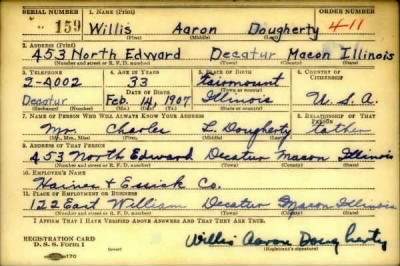 SERIAL NUMBER 1. NAME (Print) ORDER NUMBER
159 Willis Aaron Dougherty 411
(First) (Middle) (Last)
2. ADDRESS (Print)
453 North Edward Decatur Macon Illinois
(Number and street or R. F. D. number) (Town) (County) (State)
3. TELEPHONE 4. AGE IN YEARS 5. PLACE OF BIRTH 6. COUNTRY OF CITIZENSHIP
2-4002 33 Fairmount
DATE OF BIRTH (Town or county)
Decatur Feb. 14, 1907 Illinois U.S.A.
(Exchange) (Number) (Mo.) (Day) (Yr.) (State or country)
7. NAME OF PERSON WHO WILL ALWAYS KNOW YOUR ADDRESS 8. RELATIONSHIP OF THAT PERSON
Mr. Charles L Dougherty father
(Mr., Mrs., Miss) (First) (Middle) (Last)
9. ADDRESS OF THAT PERSON
453 North Edward Decatur Macon Illinois
(Number and street or R. F. D. number) (Town) (County) (State)
10. EMPLOYER'S NAME
Haines & Essick Co.
11. PLACE OF EMPLOYMENT OR BUSINESS
122 East William Decatur Macon Illinois
(Number and street or R. F. D. number) (Town) (County) (State)
I AFFIRM THAT I HAVE VERIFIED ABOVE ANSWERS AND THAT THEY ARE TRUE.
REGISTRATION CARD
D. S. S. Form 1 Willis Aaron Dougherty
(Registrant's signature)